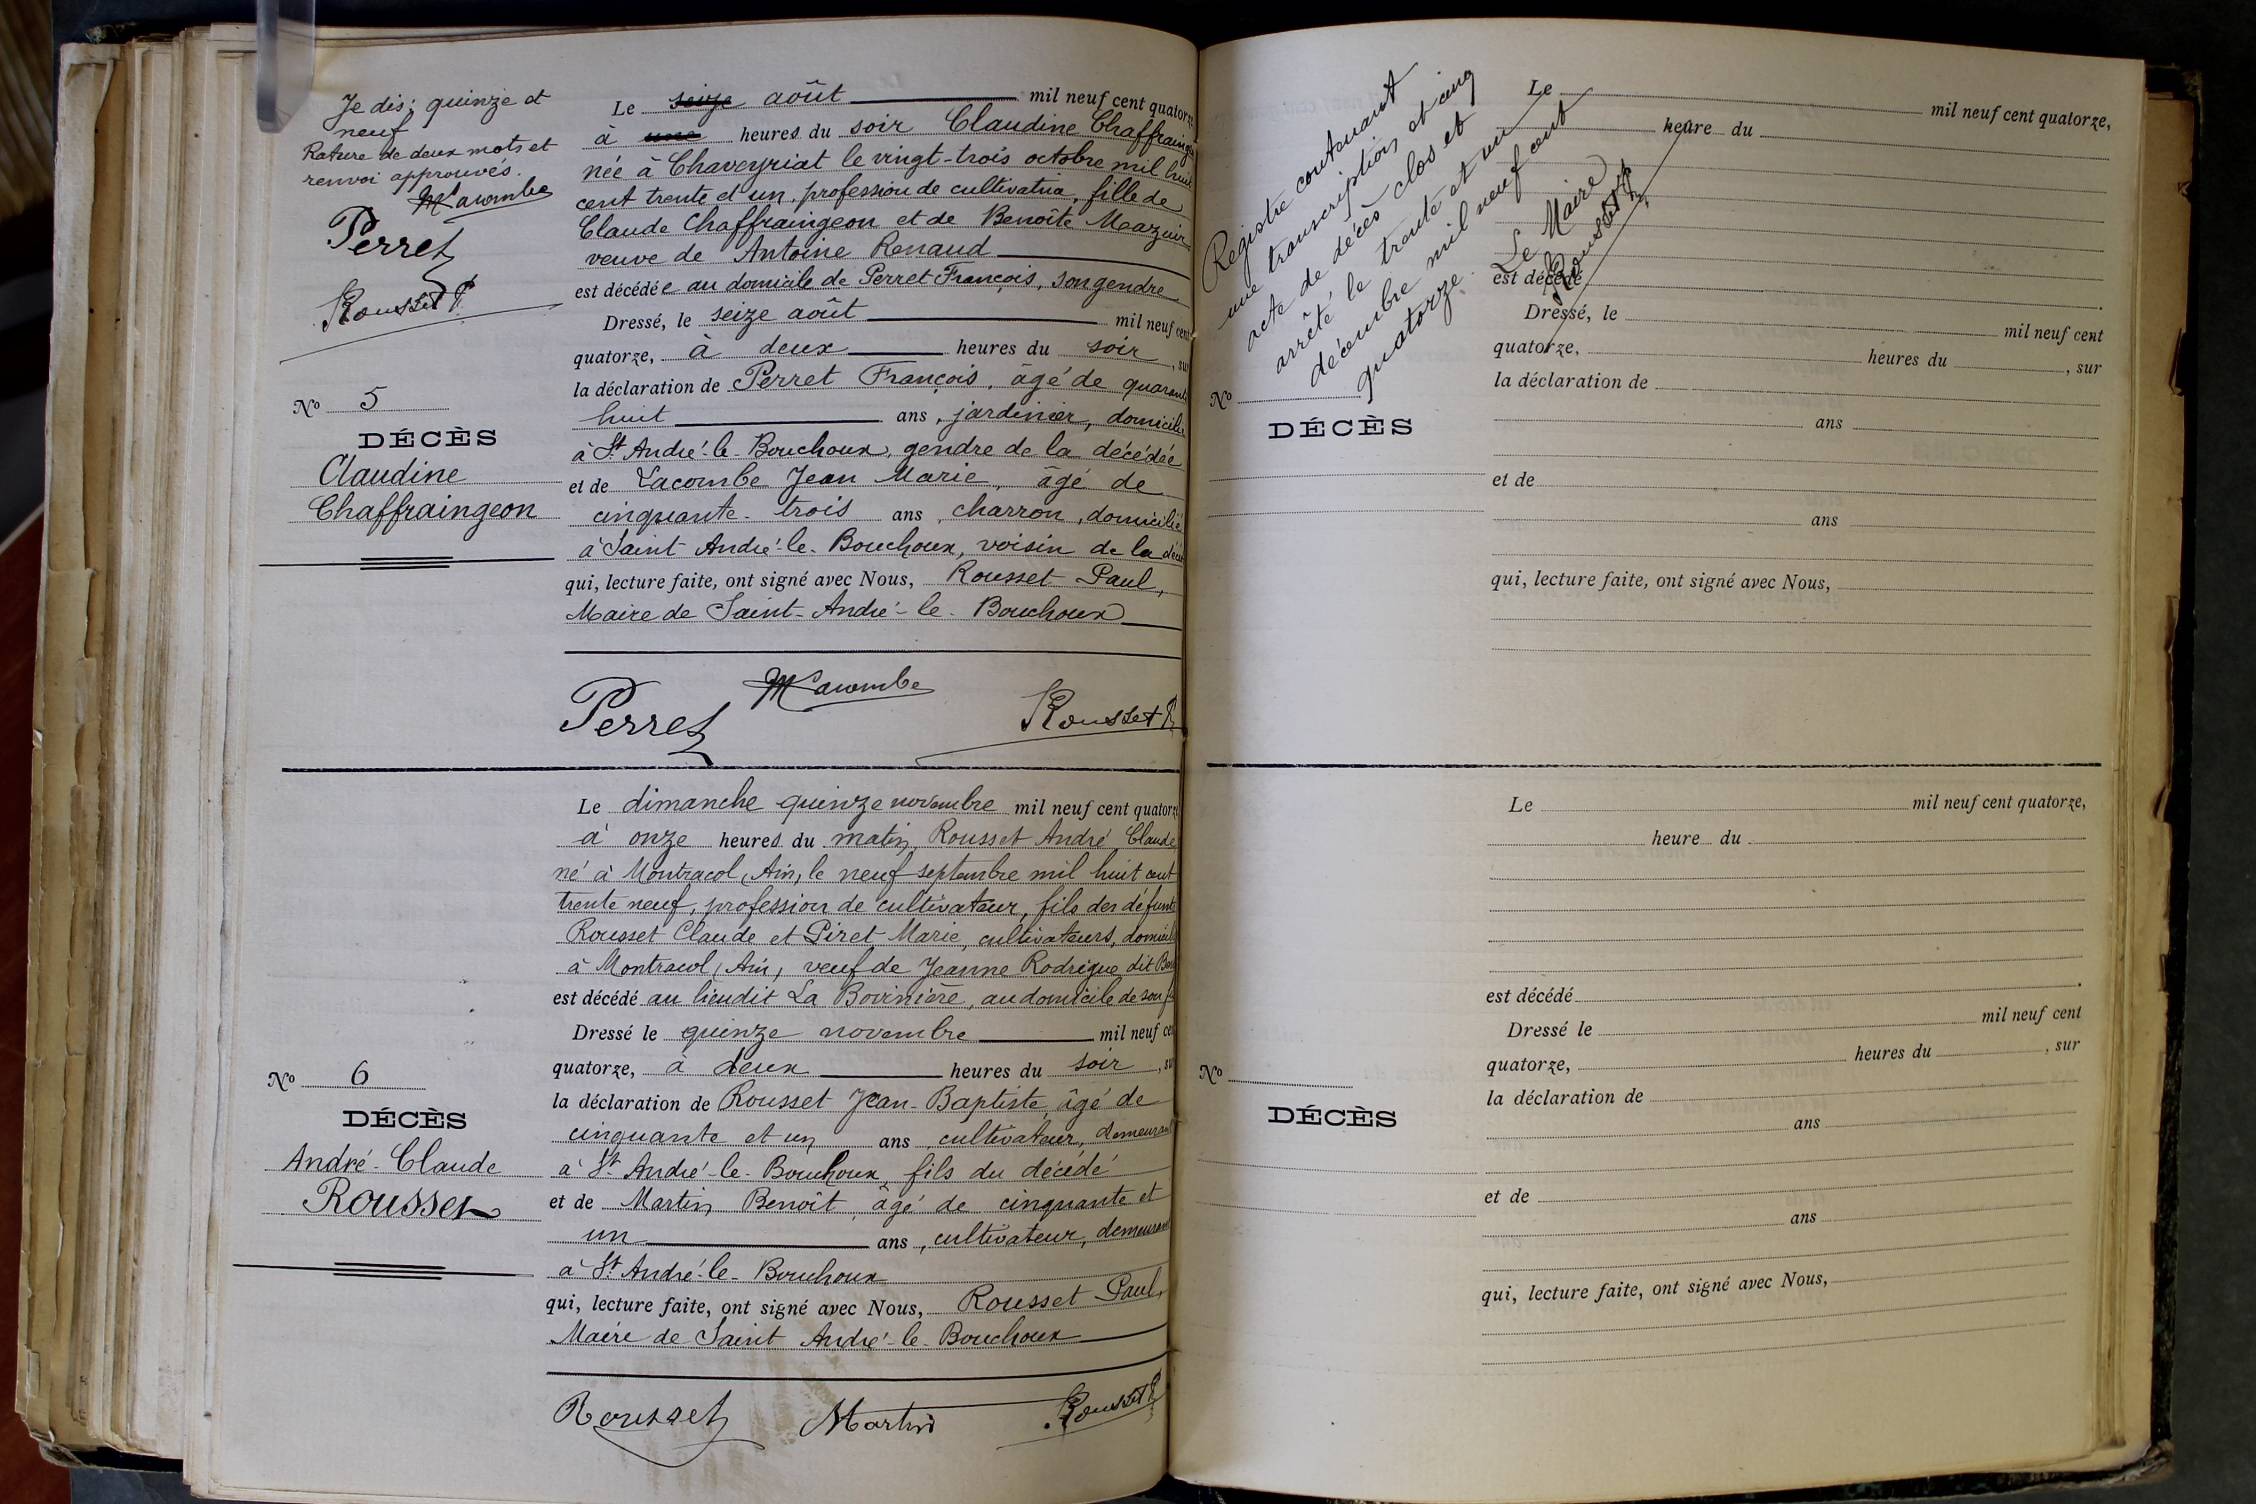 Je dis; quinze et
neuf
Rature de deux mots et
renvoi approuvés.
Perret
Rousset P.
Le seize août mil neuf cent quatorze
à heures du soir Claudine Chaffraingeon
née à Chaveyriat le vingt-trois octobre mil huit
cent trente et un, profession de cultivatrice, fille de
Claude Chaffraingeon et de Benoîte Mazuir
veuve de Antoine Renaud
est décédée au domicile de Perret François, son gendre
Dressé, le seize août mil neuf cent
quatorze, à deux heures du soir, sur
la déclaration de Perret François, âgé de quarante
huit ans, jardinier, domicilié
à St André-le-Bouchoux, gendre de la décédée
et de Lacombe Jean Marie, âgé de
cinquante-trois ans, charron, domicilié
à Saint André-le-Bouchoux, voisin de la
qui, lecture faite, ont signé avec Nous, Rousset Paul,
Maire de Saint-André-le-Bouchoux
No 5
DÉCÈS
Claudine
Chaffraingeon
Perret
Rousset P.
Le dimanche quinze novembre mil neuf cent quatorze
à onze heures du matin, Rousset André Claude
né à Montracol, Ain, le neuf septembre mil huit cent
trente neuf, profession de cultivateur, fils des défunts
Rousset Claude et Piret Marie, cultivateurs, domiciliés
à Montracol, Ain, veuf de Jeanne Rodrigue dit
est décédé au lieudit La Bovinière, au domicile de son fils
Dressé le quinze novembre mil neuf cent
quatorze, à deux heures du soir, sur
la déclaration de Rousset Jean-Baptiste, âgé de
cinquante et un ans, cultivateur, demeurant
à St André-le-Bouchoux, fils du décédé
et de Martin Benoît, âgé de cinquante et
un ans, cultivateur, demeurant
à St André-le-Bouchoux
qui, lecture faite, ont signé avec Nous, Rousset Paul,
Maire de Saint André-le-Bouchoux
No 6
DÉCÈS
André-Claude
Rousset
Rousset Martin Rousset P.
Registre contenant
une transcription et cinq
acte de décès clos et
arrêté le trente et un
décembre mil neuf cent
quatorze. Le Maire
Rousset P.
Le mil neuf cent quatorze,
heure du
est décédé
Dressé, le mil neuf cent
quatorze, heures du , sur
la déclaration de
ans
et de
ans
qui, lecture faite, ont signé avec Nous,
No
DÉCÈS
Le mil neuf cent quatorze,
heure du
est décédé
Dressé le mil neuf cent
quatorze, heures du , sur
la déclaration de
ans
et de
ans
qui, lecture faite, ont signé avec Nous,
No
DÉCÈS